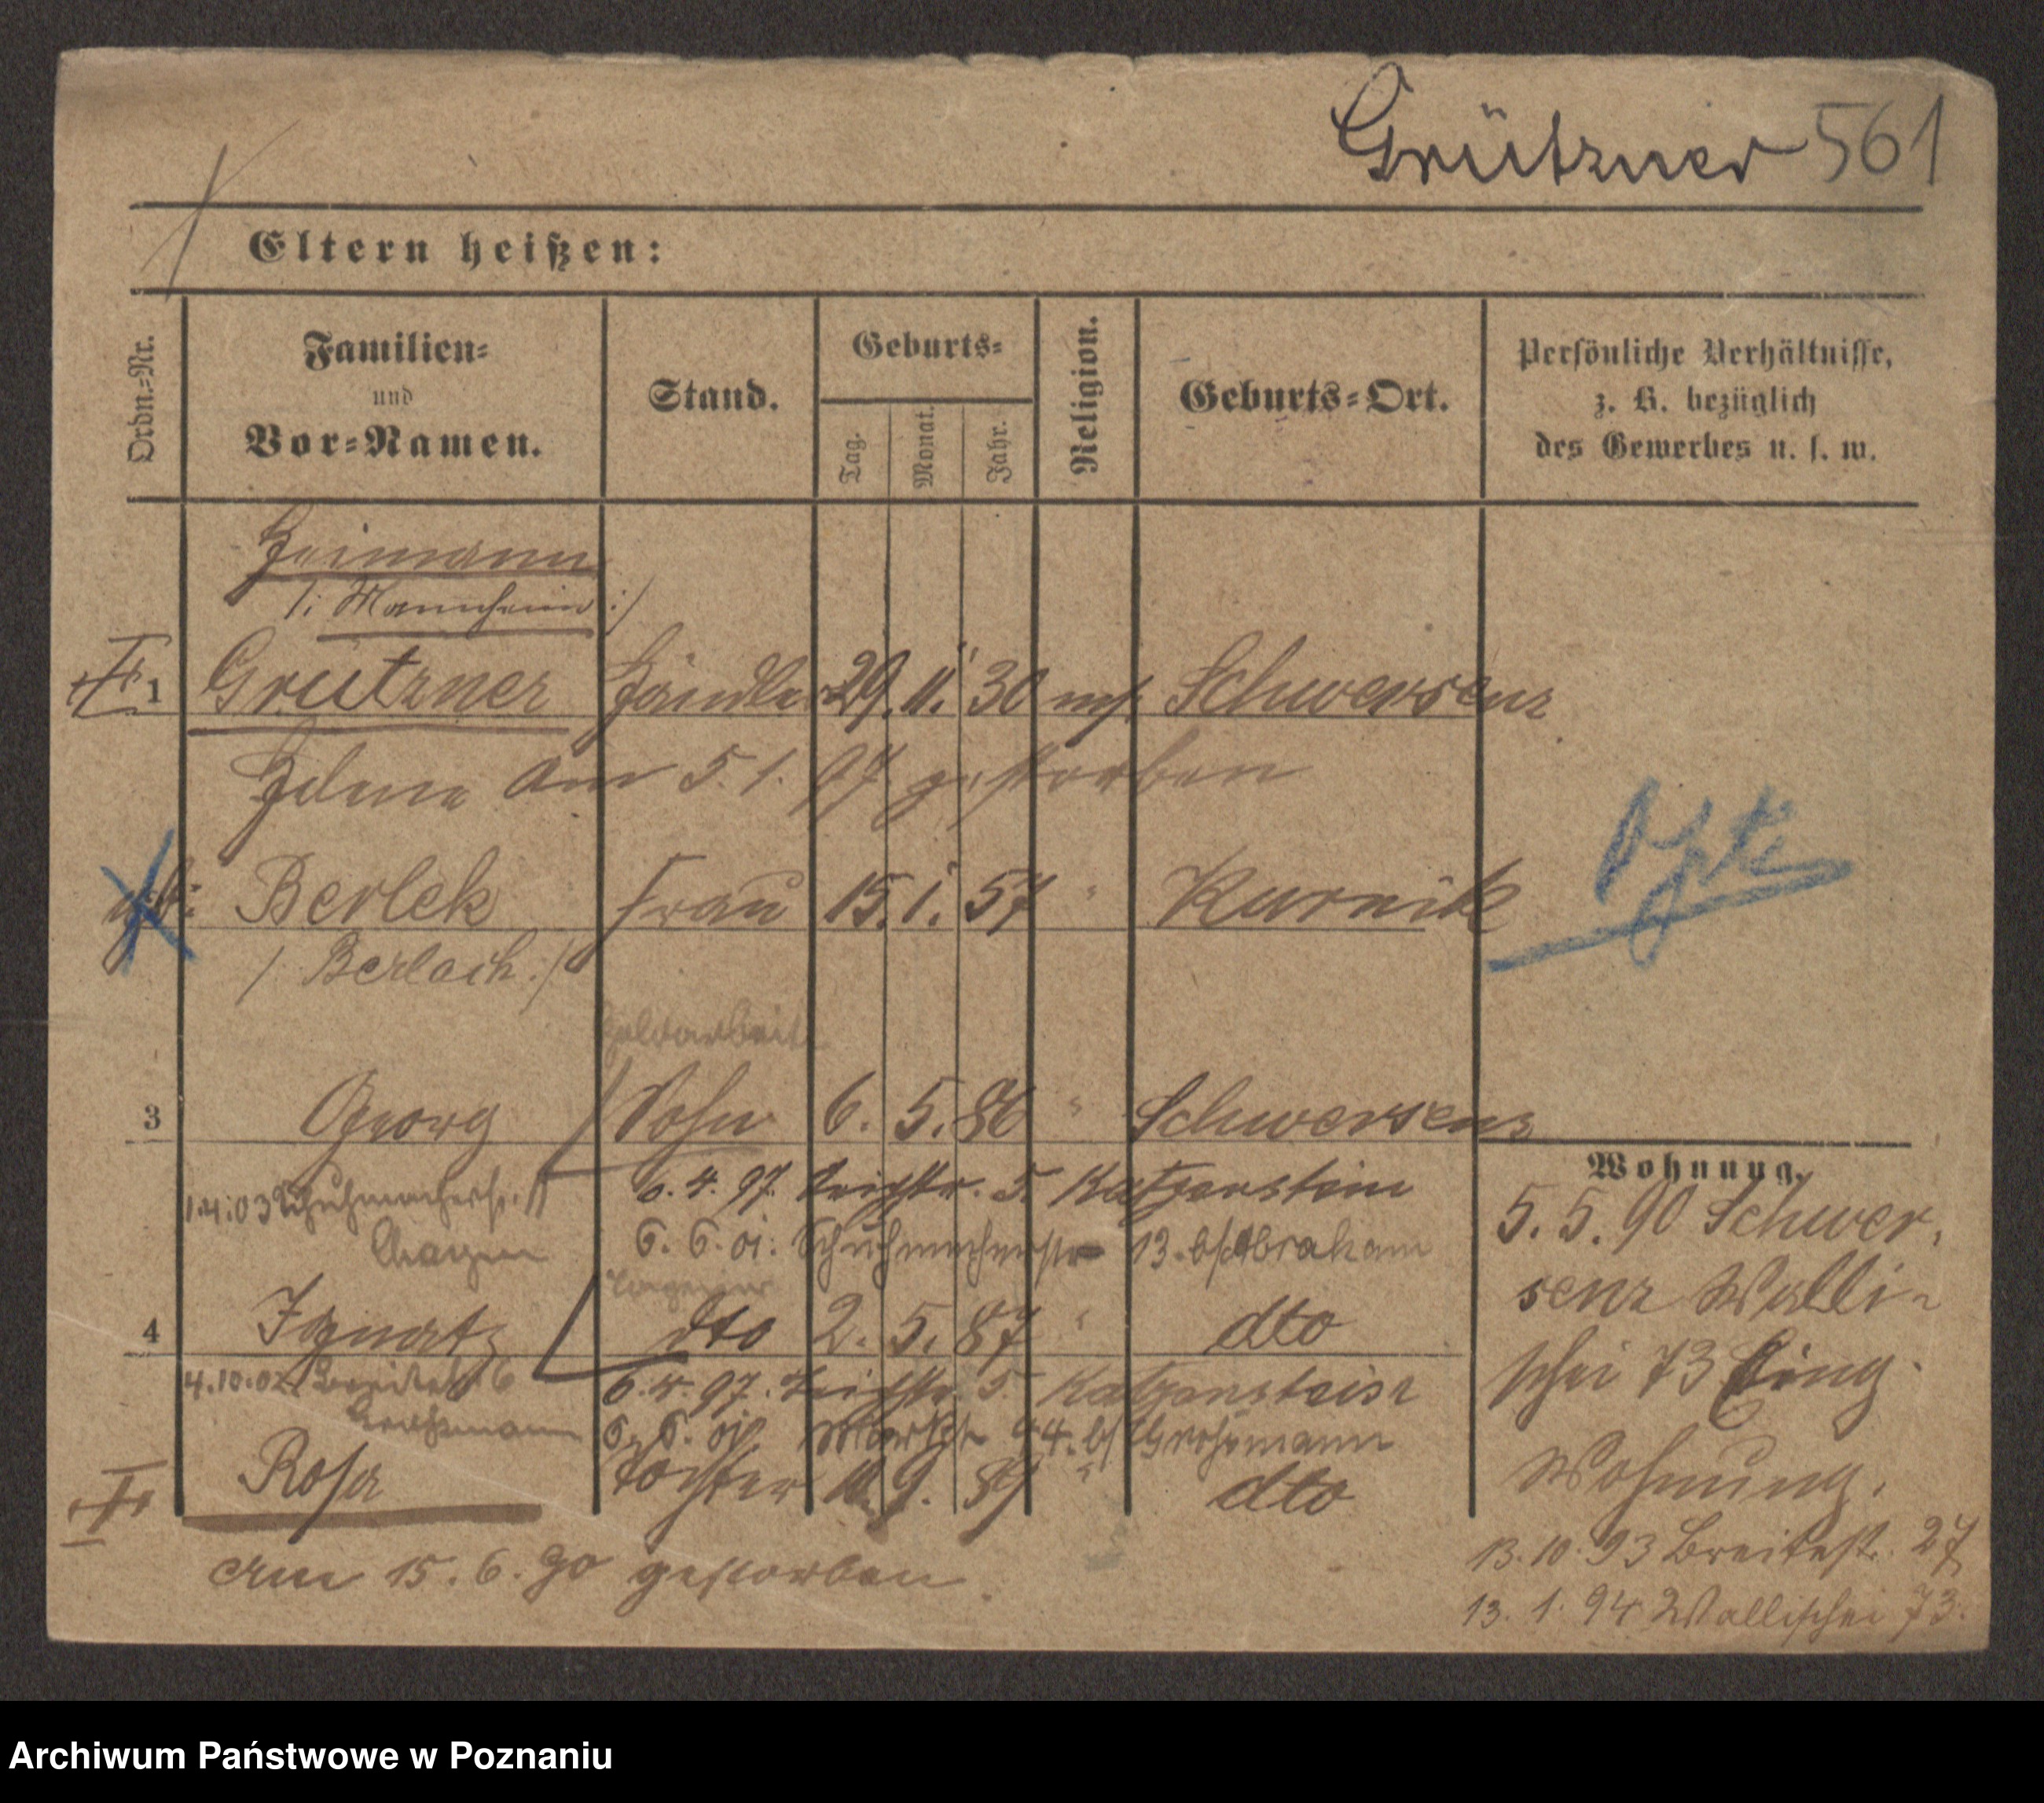 Grützner 561
Eltern heißen:
Ordn.=Nr.
Familien=
und
Vor=Namen.
Stand.
Geburts=
Tag.
Monat.
Jahr.
Religion.
Geburts=Ort.
Persönliche Verhältnisse,
z. B. bezüglich
des Gewerbes u. s. w.
Heimann
/: Mannheim :/
1 Grützner Händler 29. 11. 30 mos. Schwersenz
am 5. 1. 97 gestorben
Berlek Frau 15. 1. 57 " Kurnik
/: Berlach :/
Goldarbeit
3 Georg Sohn 6. 5. 86 " Schwersenz
6. 4. 97. Teichstr. 5. Katzenstein
1.4.03 Schuhmacherstr. 11
6. 6. 01. Schuhmacherstr 13. b/ Abraham
4 Ignatz dto 2. 5. 87 " dto
4.10.02 Breitestr. 6
6. 4. 97. Teichstr. 5 Katzenstein
6. 6. 01. 44. b/ Grossmann
Grossmann
Rosa Tochter 10. 9. 89 " dto
am 15. 6. 90 gestorben
Wohnung.
5. 5. 90 Schwer,
senz Walli-
schei 73 Eing.
Wohnung.
13. 10. 93 Breitestr. 27
13. 1. 94 Wallischei 73.
Archiwum Państwowe w Poznaniu